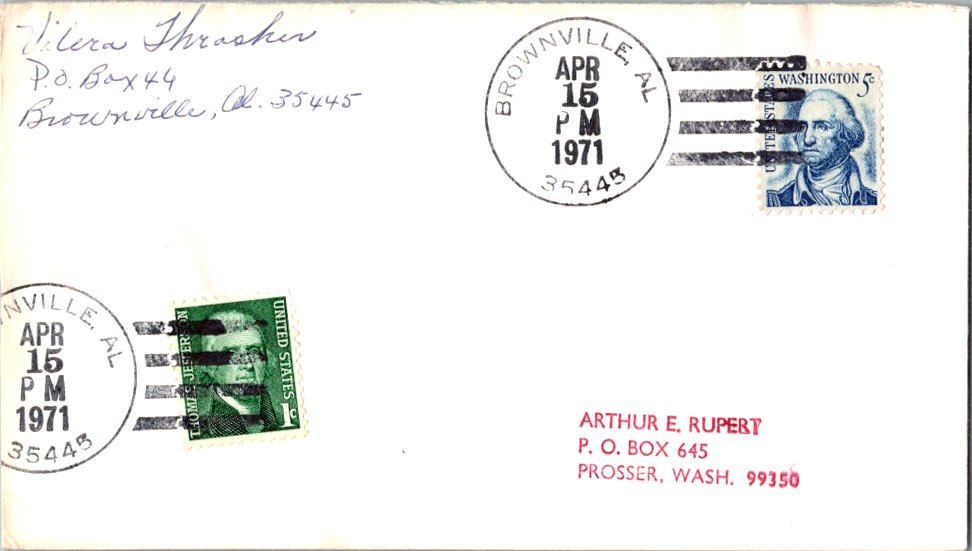 Vilera Thrasher
P.O. Box 46
Brownville, Al. 35445
BROWNVILLE, AL
APR
15
PM
1971
35445
UNITED STATES
WASHINGTON 5c
NVILLE, AL
APR
15
PM
1971
35445
THOMAS JEFFERSON
UNITED STATES
1c
ARTHUR E. RUPERT
P. O. BOX 645
PROSSER, WASH. 99350